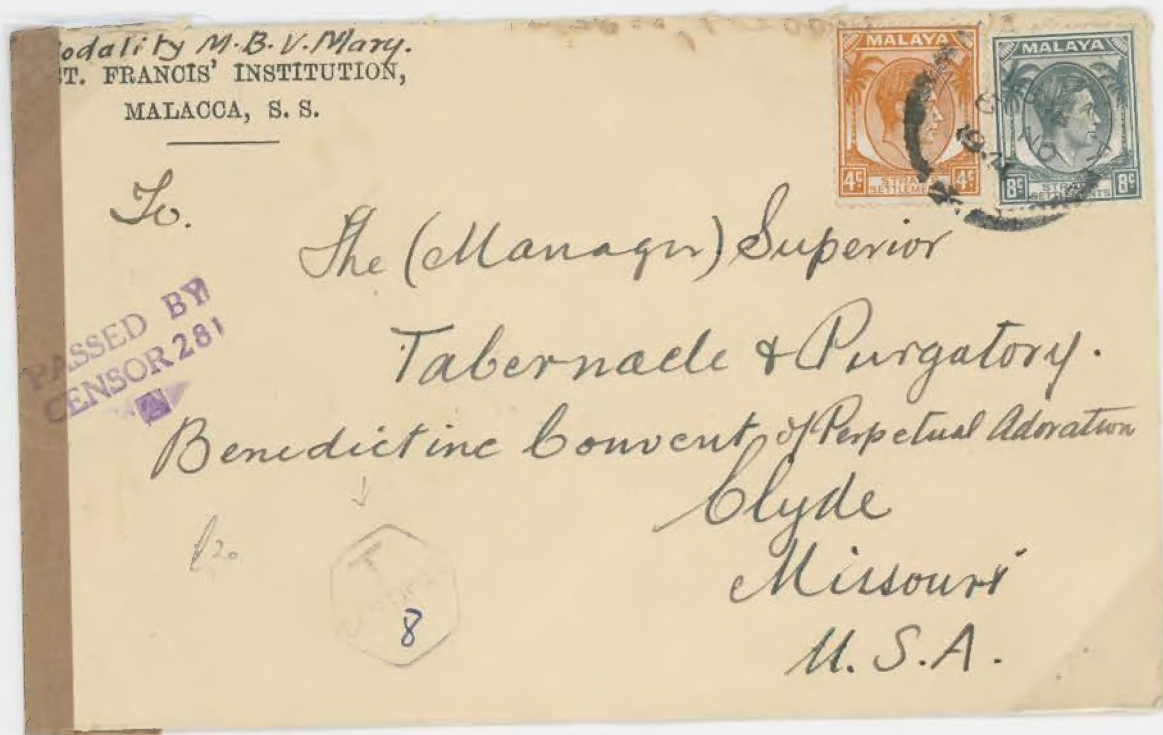 Sodality M.B.V. Mary.
ST. FRANCIS' INSTITUTION,
MALACCA, S. S.
MALAYA
4c
4c
STRAITS
SETTLEMENTS
MALAYA
8c
8c
STRAITS
SETTLEMENTS
NO
To.
The (Manager) Superior
Tabernacle & Purgatory.
Benedictine Convent of Perpetual Adoration
Clyde
Missouri
U.S.A.
PASSED BY
CENSOR 281
T
8